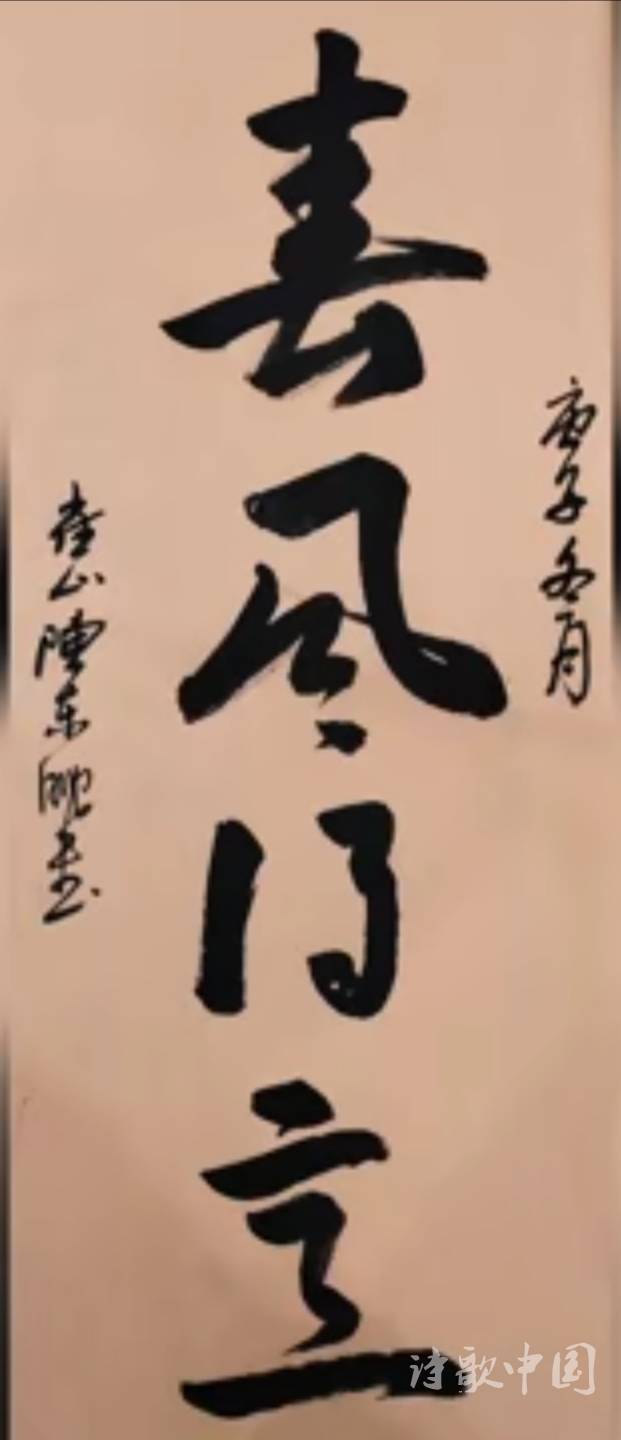 庚子冬月
春风得意
山陳东书
诗歌中国